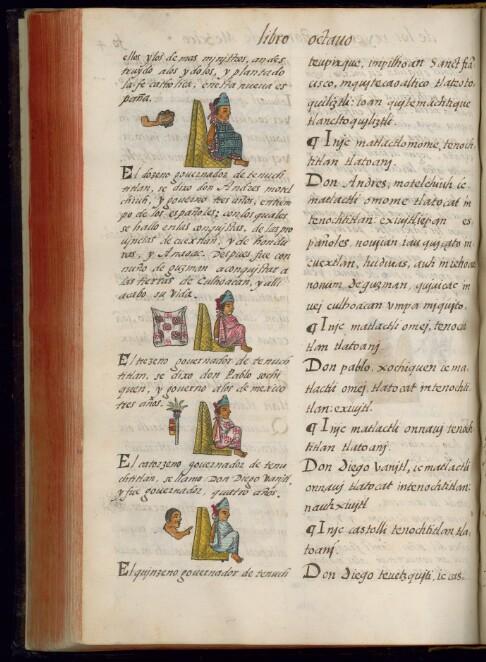 libro octauo
ellos y los de mas ministros, an des
truydo a los ydolos, y plantado
la fe catholica, en esta nueua es
paña.
El dozeno gouernador de tenuch
titlan, se dixo don Andres motel
chiuh, y gouerno tres años, en tiem
po de los españoles: con los quales
se hallo en las conquistas, de las pro
uincias de cuextlan, y de hondu
ras, y Anaoac. Despues fue con
nuño de guzman a conquistar a
las tierras de Culhoacan, y alli
acabo su vida.
El trezeno gouernador de tenuch
titlan, se dixo don Pablo xochi
quen, y gouerno a los de mexico
tres años.
El catorzeno gouernador de tenu
chtitlan, se llamo Don Diego vanitl,
y fue gouernador, quatro años.
El quinzeno gouernador de tenuch
teupixque, in pilhoan Sanct frã
cisco,
tlaneltoquiliztli.
¶ Inic matlactlomome, tenoch
titlan tlatoanj.
Don Andres, motelchiuh ic
matlactli omome tlatocat in
tenochtitlan: exiuitl ipan es
pañoles, noujan
cuextlan,
Deguzman,
vej culhoacan vmpa mjqujto.
¶ Inic matlactli omej, tenoch
tlan tlatoanj
Don pablo xochiquen ic ma
tlactli omej tlatocat in tenochti
tlan: exiujtl.
¶ Inic matlactli onnauj tenoch
titlan tlatoanj.
Don Diego vanjtl, ic matlactli
onnauj tlatocat in tenochtitlan:
nauhxiujtl
¶ Inic castolli tenochtitlan tla
toanj.
Don Diego teuetzqujti, ic cas